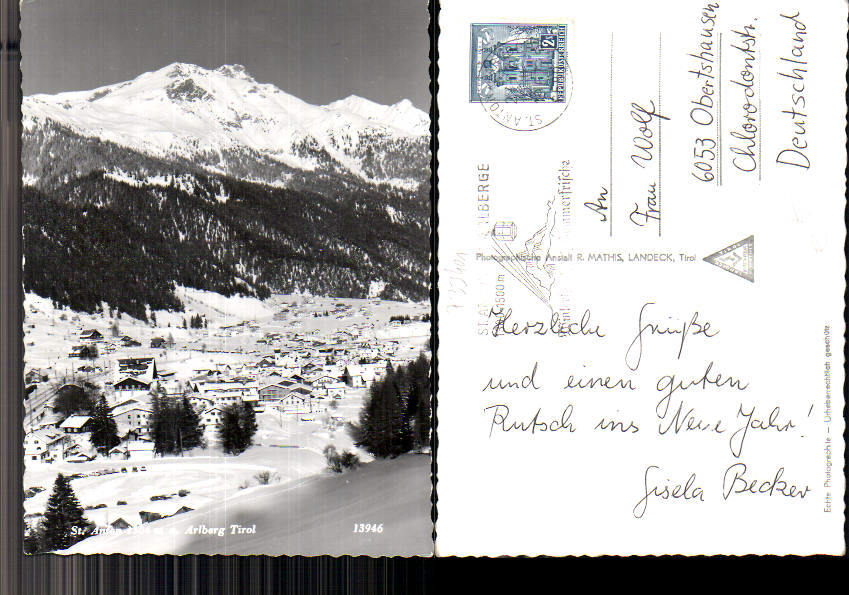 St. Anton 1304 m a. Arlberg Tirol
13946
REPUBLIK ÖSTERREICH
ST. ANTON
An
Frau Wolf
6053 Obertshausen
Chlorodontstr.
Deutschland
Photographische Anstalt R. MATHIS, LANDECK, Tirol
Herzliche Grüße
und einen guten
Rutsch ins Neue Jahr!
Gisela Becker
Echte Photographie — Urheberrechtlich geschützt